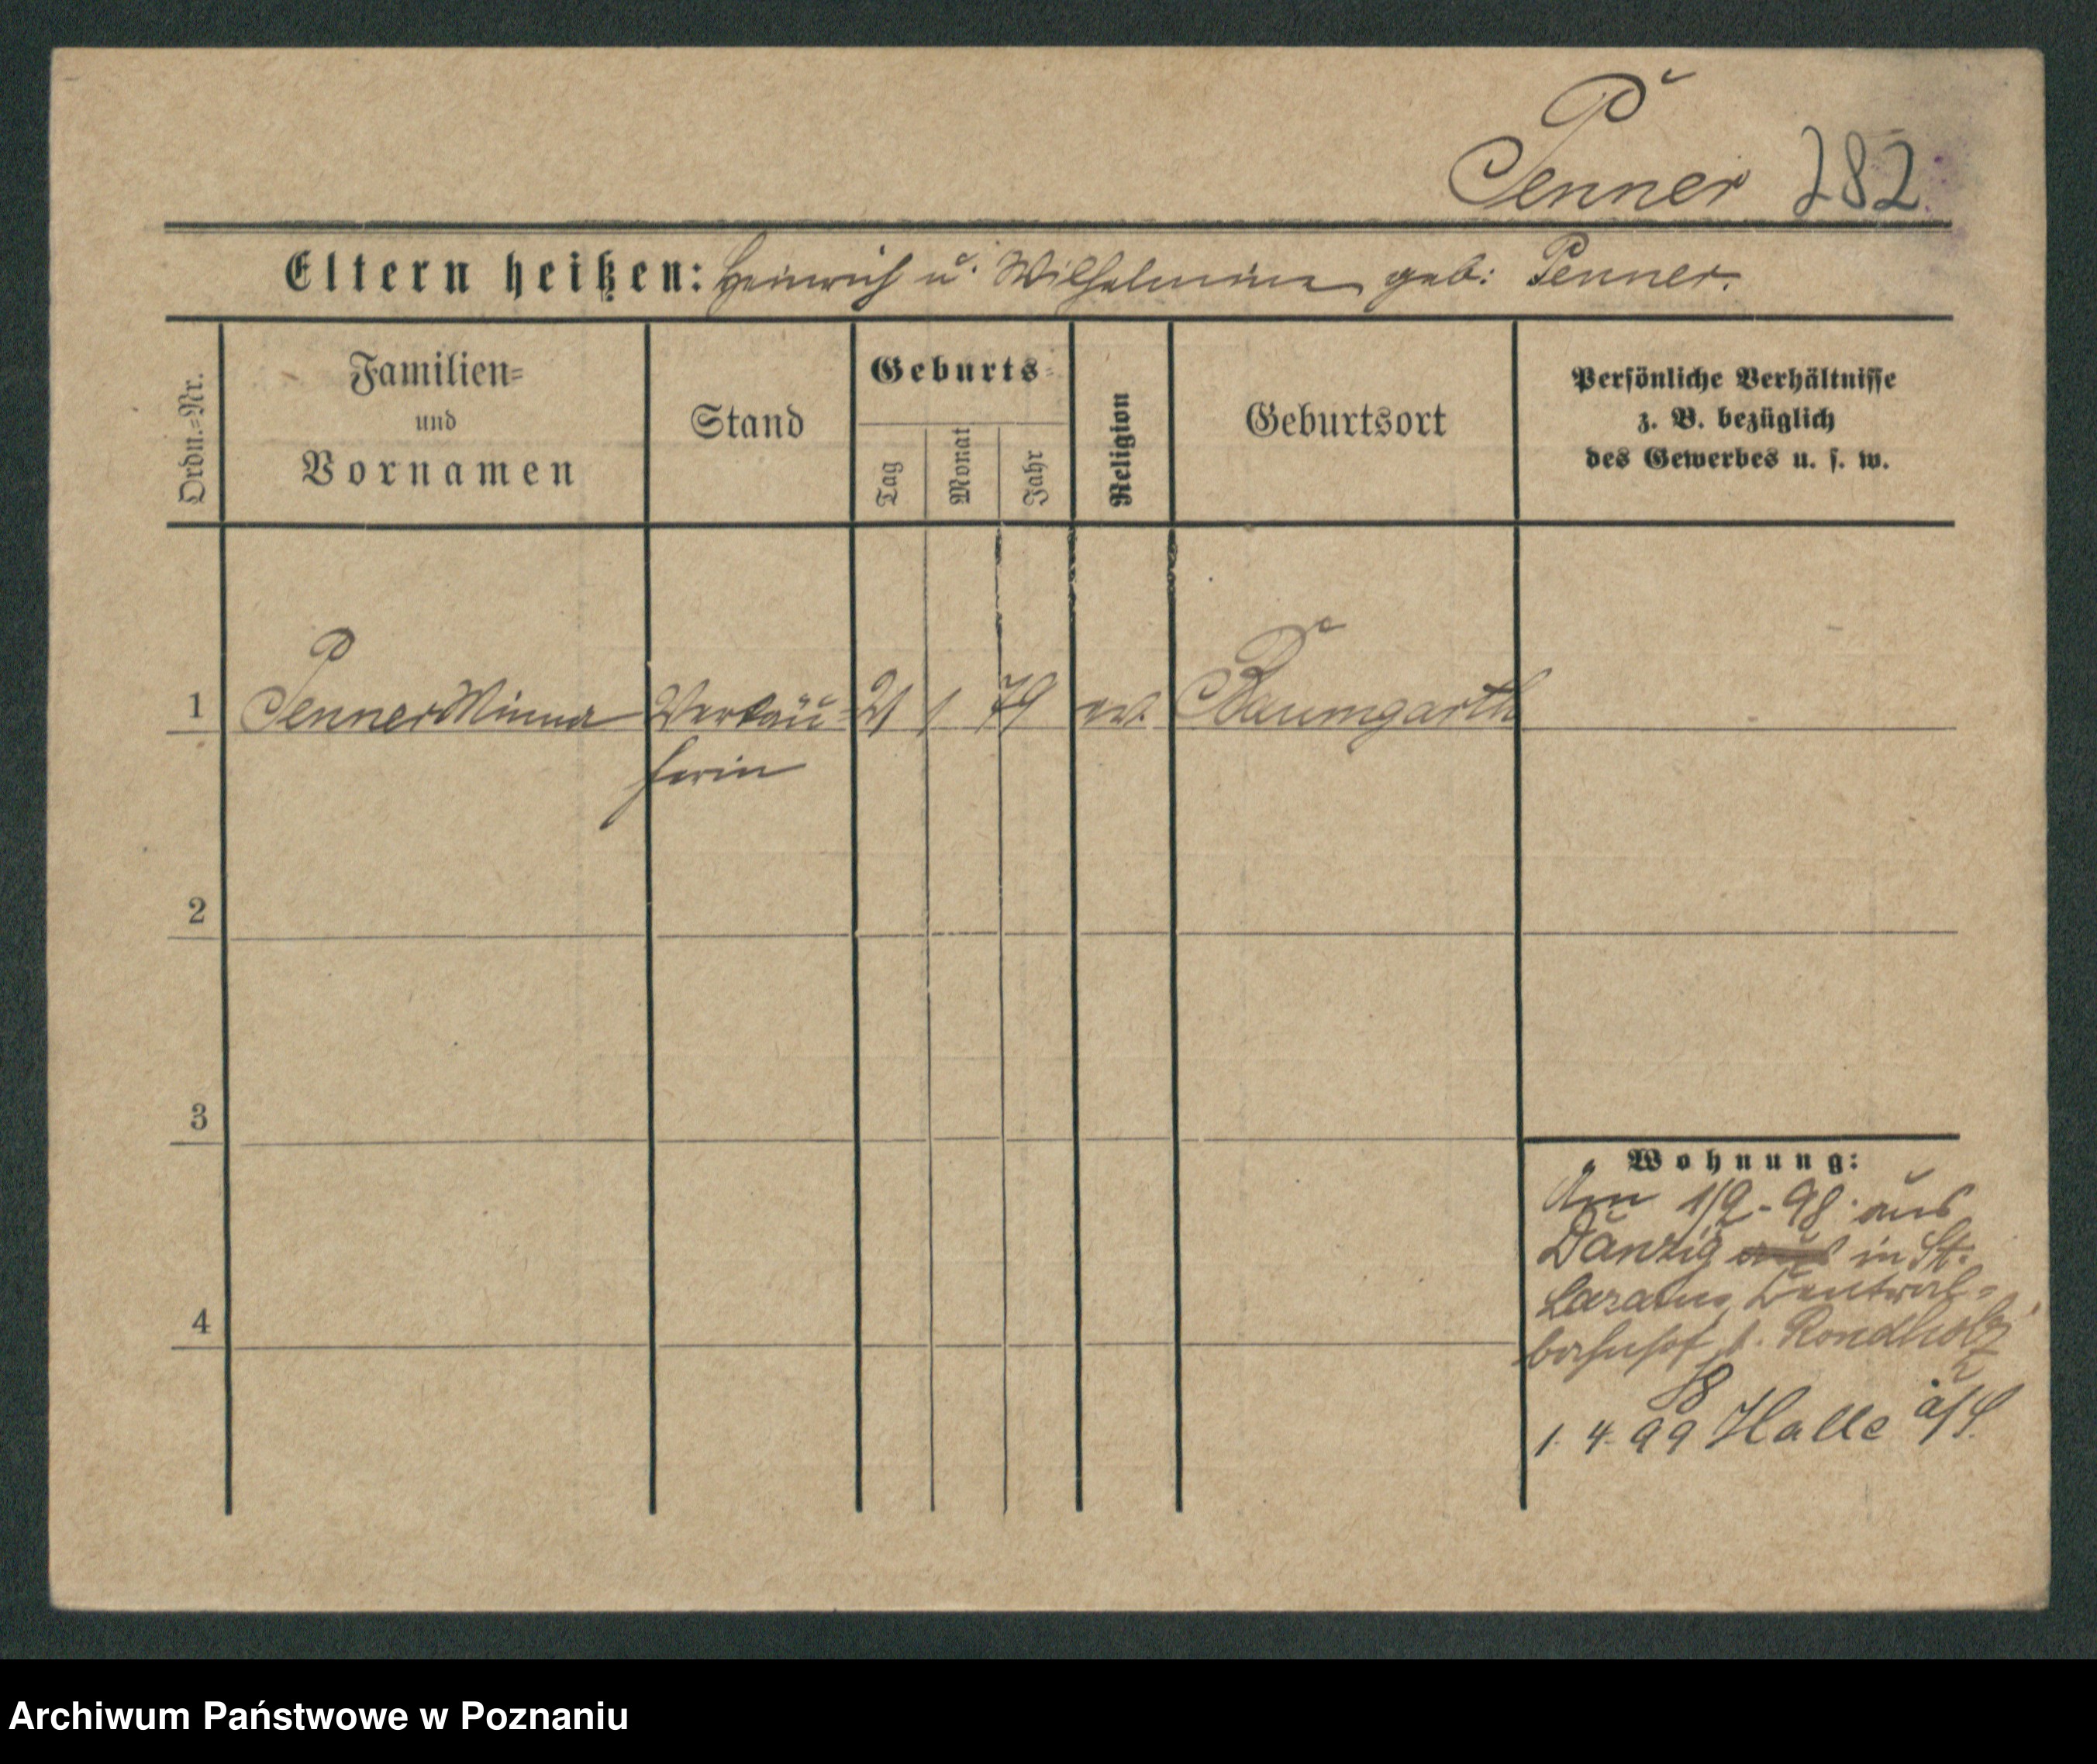 Penner 282
Eltern heißen: Heinrich u. Wilhelmine geb: Penner.
Ordn.=Nr.
Familien=
und
Vornamen
Stand
Geburts=
Tag
Monat
Jahr
Religion
Geburtsort
Persönliche Verhältnisse
z. B. bezüglich
des Gewerbes u. s. w.
1 Penner Minna Verkäu= 21 1 79 ev. Baumgarth
ferin
2
3
4
Wohnung:
Am 1/9-98 aus
Danzig in St.
Lazarus, Central=
bahnhof b. Rondholz
1. 4. 99 Halle a/S.
Archiwum Państwowe w Poznaniu